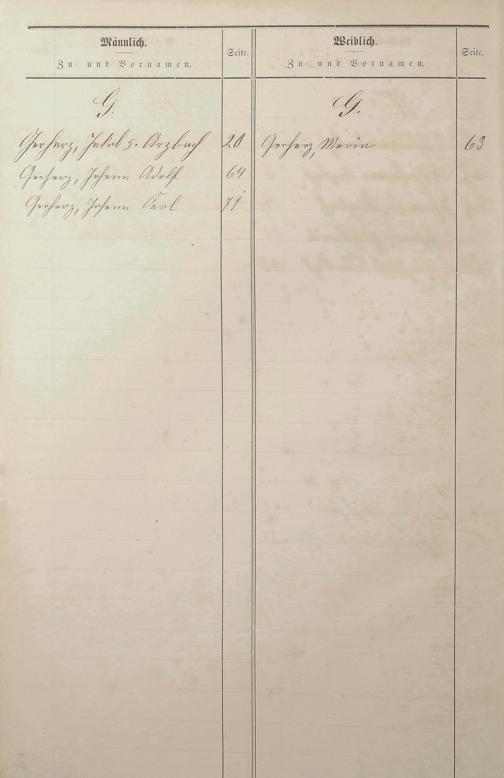 Männlich.
Zu- und Vornamen.
Seite.
G.
Gerharz, Jakob 5. Arzbach 20
Gerharz, Johann Adolf 64
Gerharz, Johann Karl 71
Weiblich.
Zu- und Vornamen.
Seite.
G.
Gerharz, Maria 63